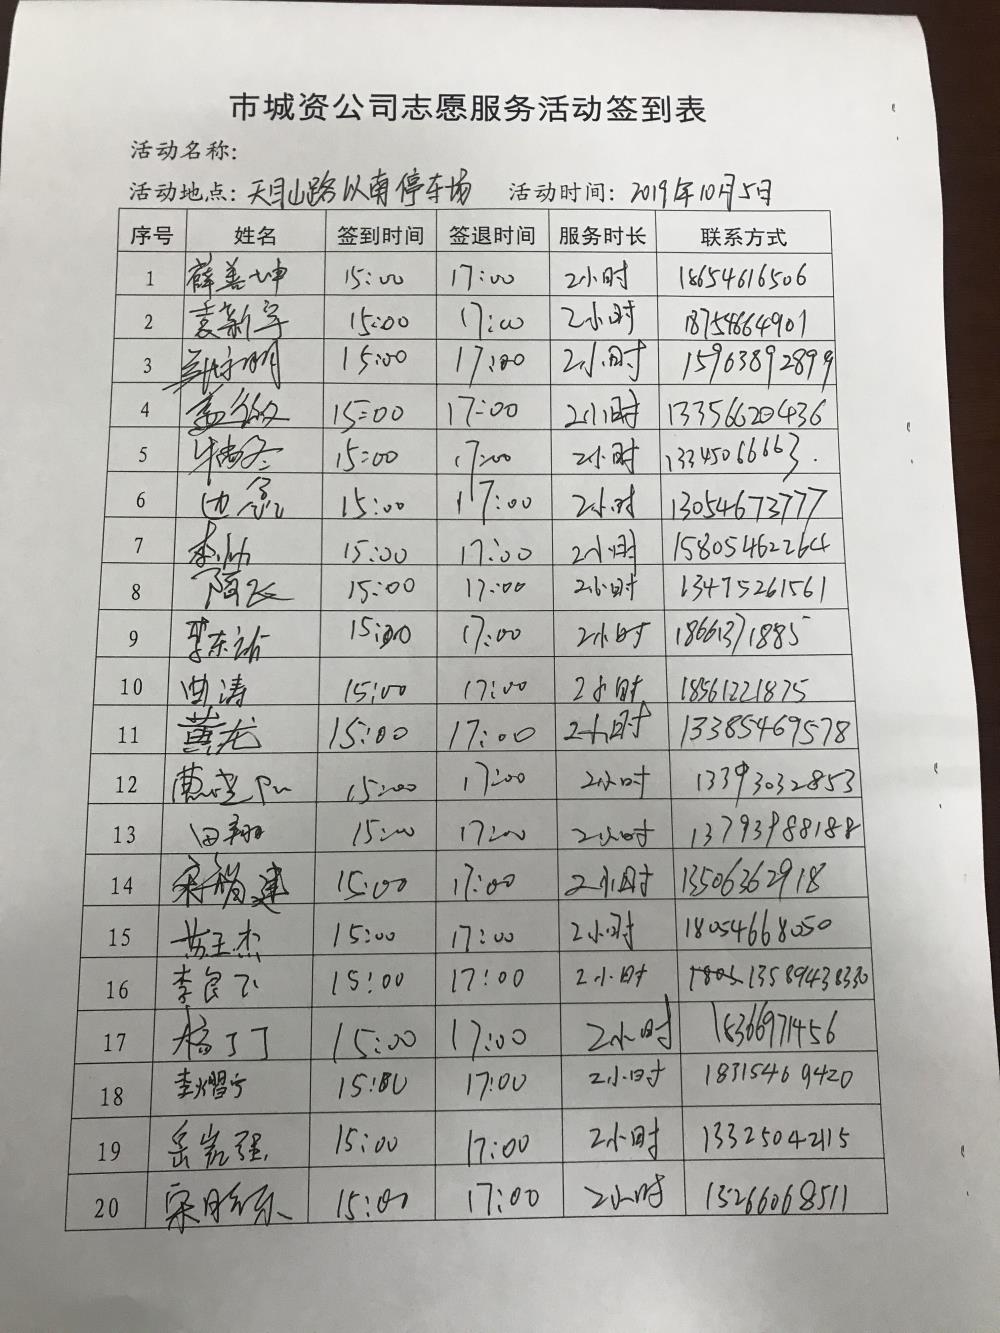 市城资公司志愿服务活动签到表
活动名称:
活动地点: 天目山路以南停车场 活动时间: 2019年10月5日
序号 姓名 签到时间 签退时间 服务时长 联系方式
1 薛善坤 15:00 17:00 2小时 18654616506
2 袁新军 15:00 17:00 2小时 18754664901
3 15:00 17:00 2小时 15963892899
4 15:00 17:00 2小时 13356620436
5 15:00 17:00 2小时 13345066663
6 边磊 15:00 17:00 2小时 13054673777
7 李帅 15:00 17:00 2小时 15805462264
8 15:00 17:00 2小时 13475261561
9 15:00 17:00 2小时 18661371885
10 曲涛 15:00 17:00 2小时 18561221875
11 黄龙 15:00 17:00 2小时 13385469578
12 15:00 17:00 2小时 13393032853
13 田翔 15:00 17:00 2小时 13793988188
14 宋福建 15:00 17:00 2小时 13506362918
15 苏玉杰 15:00 17:00 2小时 18054668050
16 李良飞 15:00 17:00 2小时 13589438330
17 杨丁丁 15:00 17:00 2小时 18366971456
18 李熠宁 15:00 17:00 2小时 18315469420
19 岳岩强 15:00 17:00 2小时 13325042115
20 15:00 17:00 2小时 13266068511